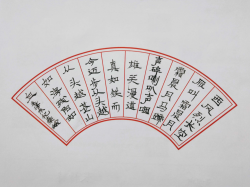 西风烈长空
雁叫霜晨月
霜晨月马蹄
声碎喇叭声咽
雄关漫道
真如铁而
今迈步从头越
从头越苍山
如海残阳如
血